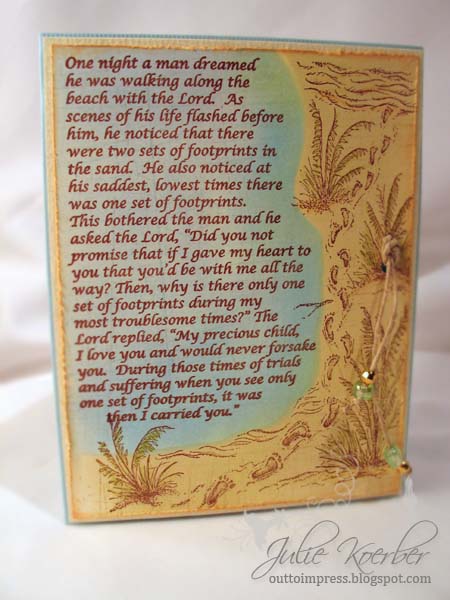 One night a man dreamed
he was walking along the
beach with the Lord. As
scenes of his life flashed before
him, he noticed that there
were two sets of footprints in
the sand. He also noticed at
his saddest, lowest times there
was one set of footprints.
This bothered the man and he
asked the Lord, “Did you not
promise that if I gave my heart to
you that you’d be with me all the
way? Then, why is there only one
set of footprints during my
most troublesome times?” The
Lord replied, “My precious child,
I love you and would never forsake
you. During those times of trials
and suffering when you see only
one set of footprints, it was
then I carried you.”
Julie Koerber
outtoimpress.blogspot.com